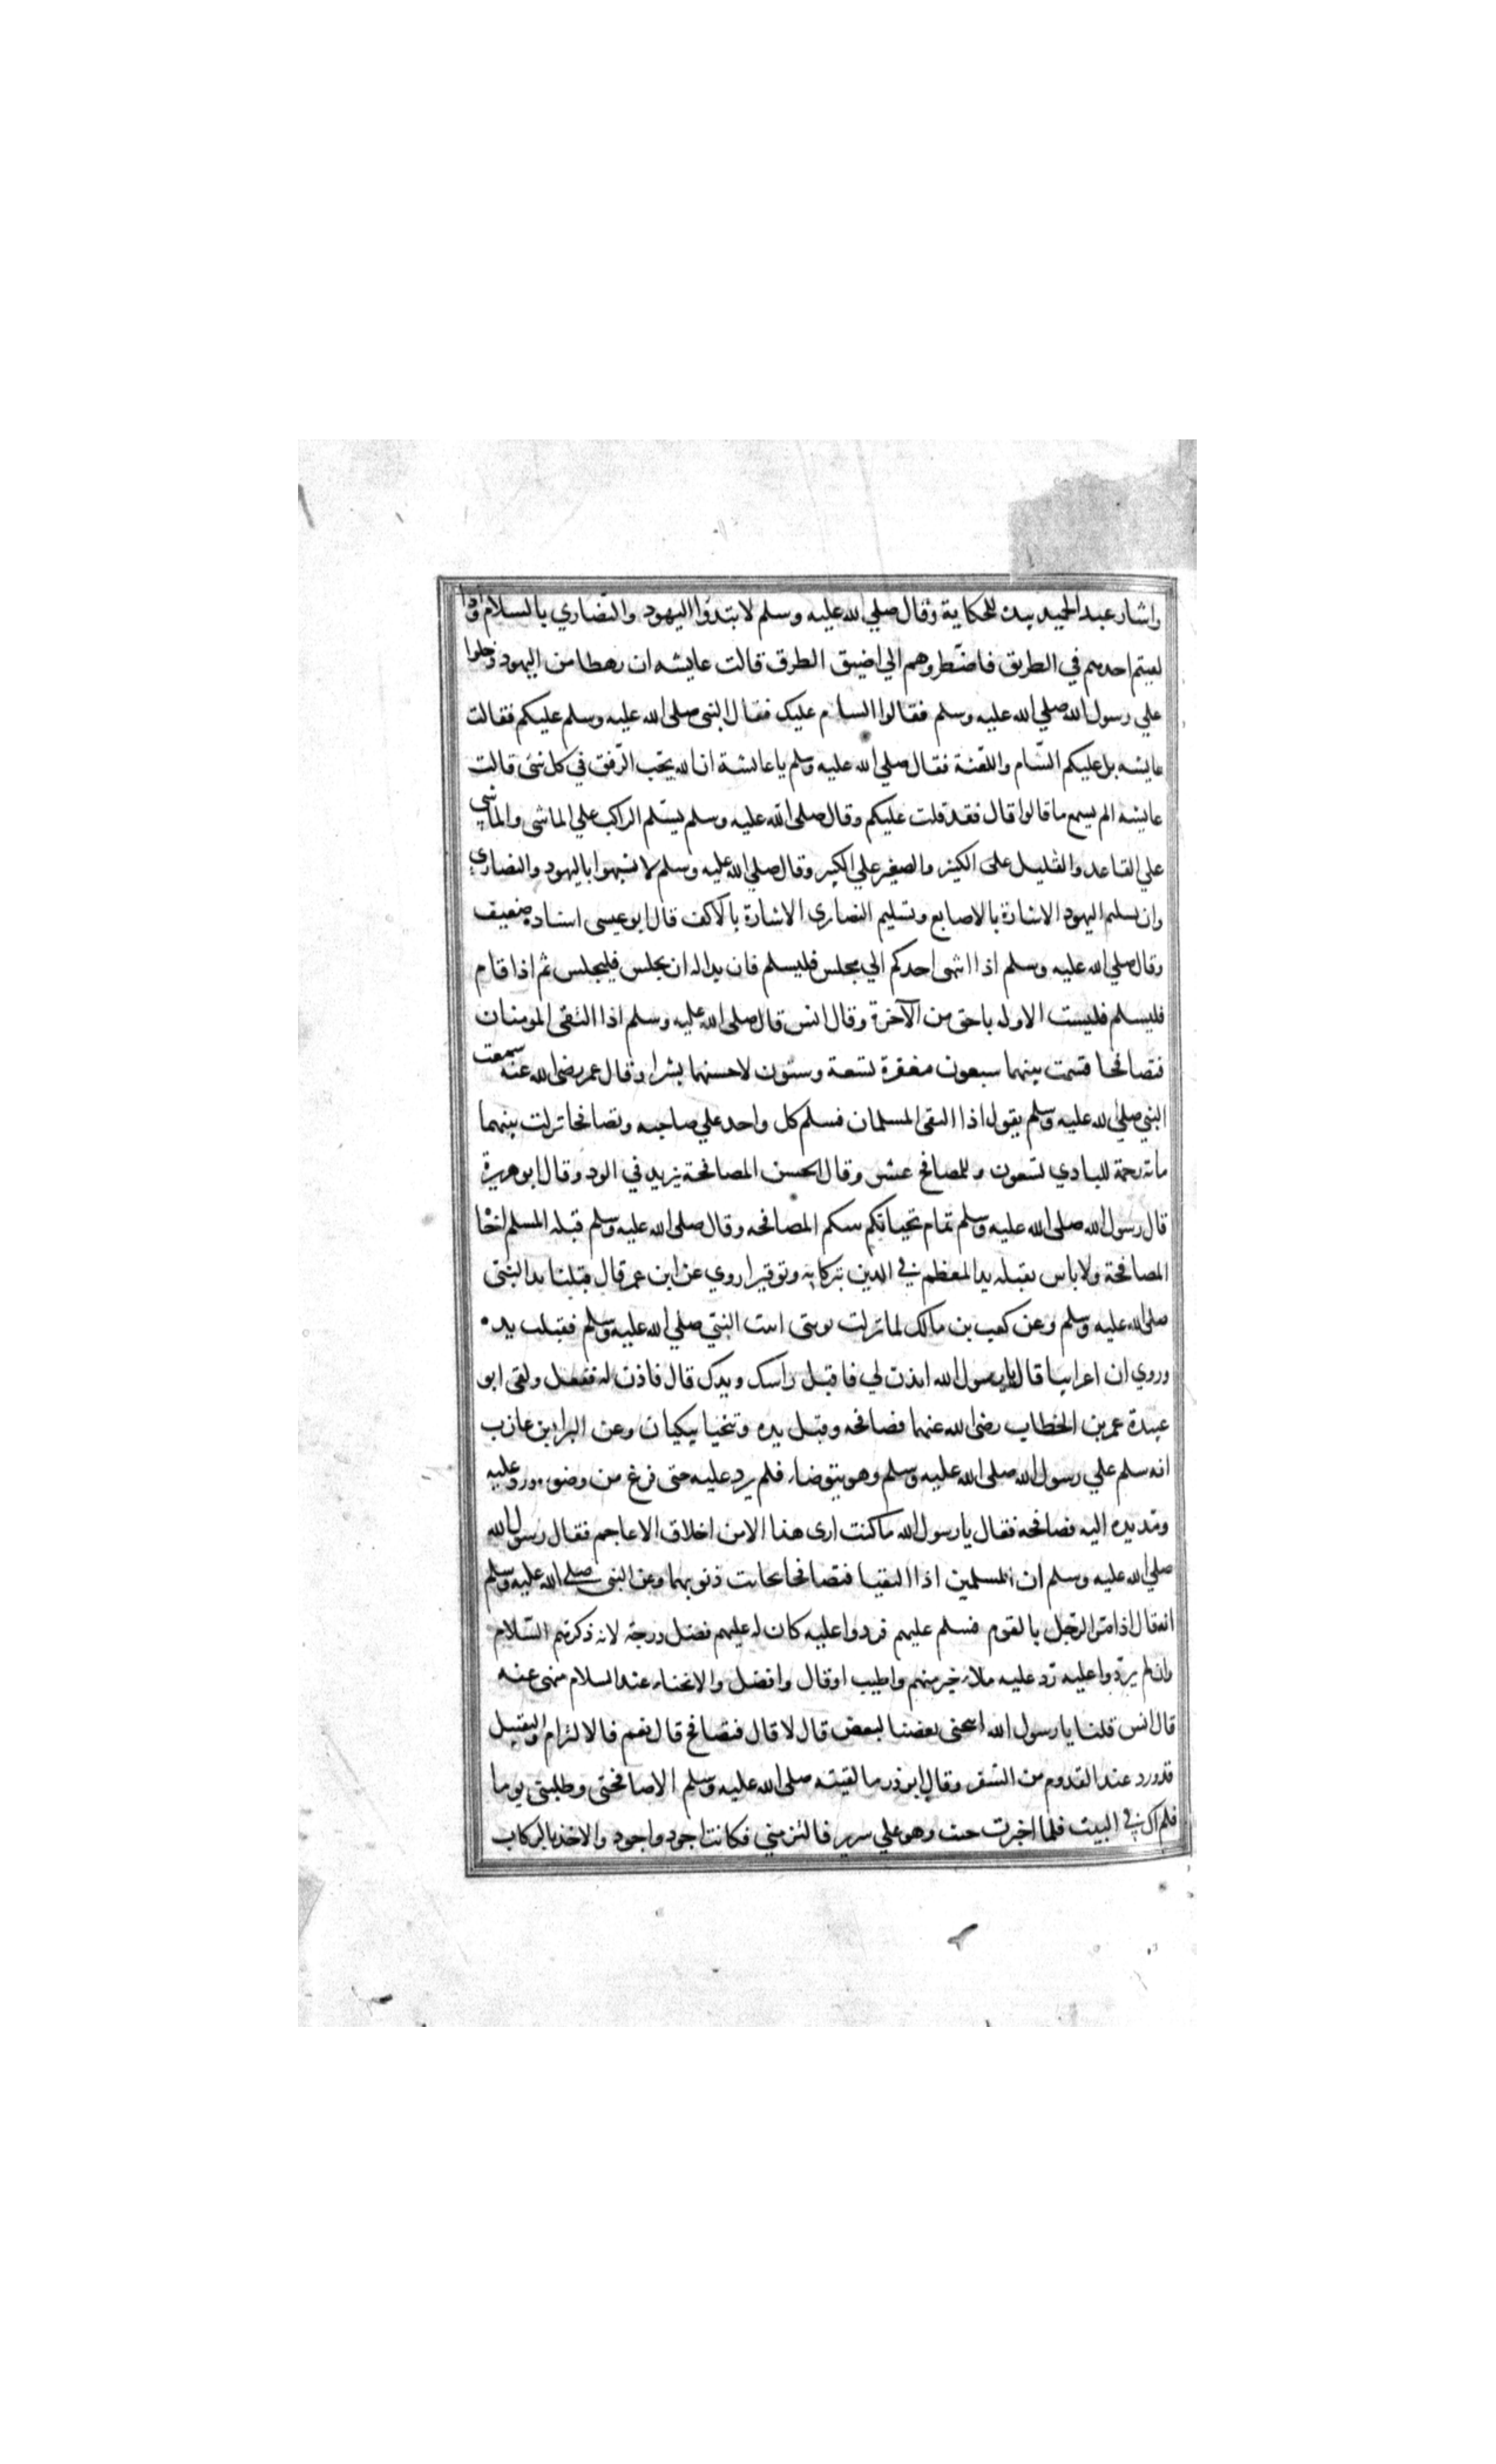 واشار عبد الحميد بيده للحكاية وقال صلي الله عليه وسلم لا تبتدؤا اليهود والنصاري بالسلام واذا
لقيتم احدهم في الطريق فاضطروهم الي اضيق الطرق قالت عايشه ان رهطا من اليهود دخلوا
علي رسول الله صلي الله عليه وسلم فقالوا السام عليك فقال النبي صلى الله عليه وسلم عليكم فقالت
عايشه بل عليكم السّام واللعنة فقال صلي الله عليه وسلم يا عائشة ان الله يحّب الرّفق في كل شئ قالت
عايشه الم يسمع ما قالوا قال فقد قلت عليكم وقال صلى الله عليه وسلم يسّلم الراكب علي الماشى والماشي
علي القاعد والقليل على الكثير والصغير علي الكبير وقال صلي الله عليه وسلم لا تشبهوا باليهود والنصاري
وان تسليم اليهود الاشارة بالاصابع وتسليم النصارى الاشارة بالاكف قال ابو عيسى اسناده ضعيف
وقال صلي الله عليه وسلم اذا انتهى احدكم الي مجلس فليسلم فان بدا له ان يجلس فليجلس ثم اذا قام
فليسلم فليست الاولى باحق من الآخرة وقال انس قال صلى الله عليه وسلم اذا التقى المومنان
فتصافحا قسمت بينهما سبعون مغفرة تسعة وستون لاحسنهما بشرا وقال عمر رضى الله عنه سمعت
النبي صلي الله عليه وسلم يقول اذا التقى المسلمان فسلم كل واحد علي صاحبه وتصافحا نزلت بينهما
مائة رحمة للبادي تسعون وللمصافح عشر وقال الحسن المصافحة يزيد في الود وقال ابو هريرة
قال رسول الله صلى الله عليه وسلم تمام تحياتكم بينكم المصافحه وقال صلى الله عليه وسلم قبله المسلم اخاه
المصافحة ولا باس بقبله يد المعظم في الدين تبركا به وتوقيرا روي عن ابن عمر قال قبلنا يد النبي
صلى الله عليه وسلم وعن كعب بن مالك لما نزلت توبتى اتيت النبي صلي الله عليه وسلم فقبلت يده
وروي ان اعرابيا قال يا رسول الله ايذن لي فاقبل راسك ويدك قال فاذن له ففعل ولقى ابو
عبيدة عمر بن الخطاب رضى الله عنهما فصافحه وقبل يده وتنحيا يبكيان وعن البرا بن عازب
انه سلم علي رسول الله صلى الله عليه وسلم وهو يتوضاء فلم يرد عليه حتى فرغ من وضوء ورد عليه
ومد يده اليه فصافحه فقال يا رسول الله ما كنت ارى هذا الا من اخلاق الاعاجم فقال رسول الله
صلي الله عليه وسلم ان المسلمين اذا التقيا فتصافحا تحاتت ذنوبهما وعن النبى صلى الله عليه وسلم
انه قال اذا مّر الرّجل بالقوم فسلم عليهم فردوا عليه كان له عليهم فضل درجة لانه ذكرهم السّلام
وان لم يرّدوا عليه رّد عليه ملاء خير منهم واطيب او قال وافضل والانحناء عند السلام منهى عنه
قال انس قلنا يا رسول الله اينحنى بعضنا لبعض قال لا قال فتصافح قال نعم فالالتزام والتقبيل
قد ورد عند القدوم من السّفر وقال ابو ذر ما لقيته صلى الله عليه وسلم الا صافحنى وطلبنى يوما
فلم اكن في البيت فلما اخبرت جئت وهو علي سرير فالتزمني فكانت اجود واجود والاخذ بالركاب